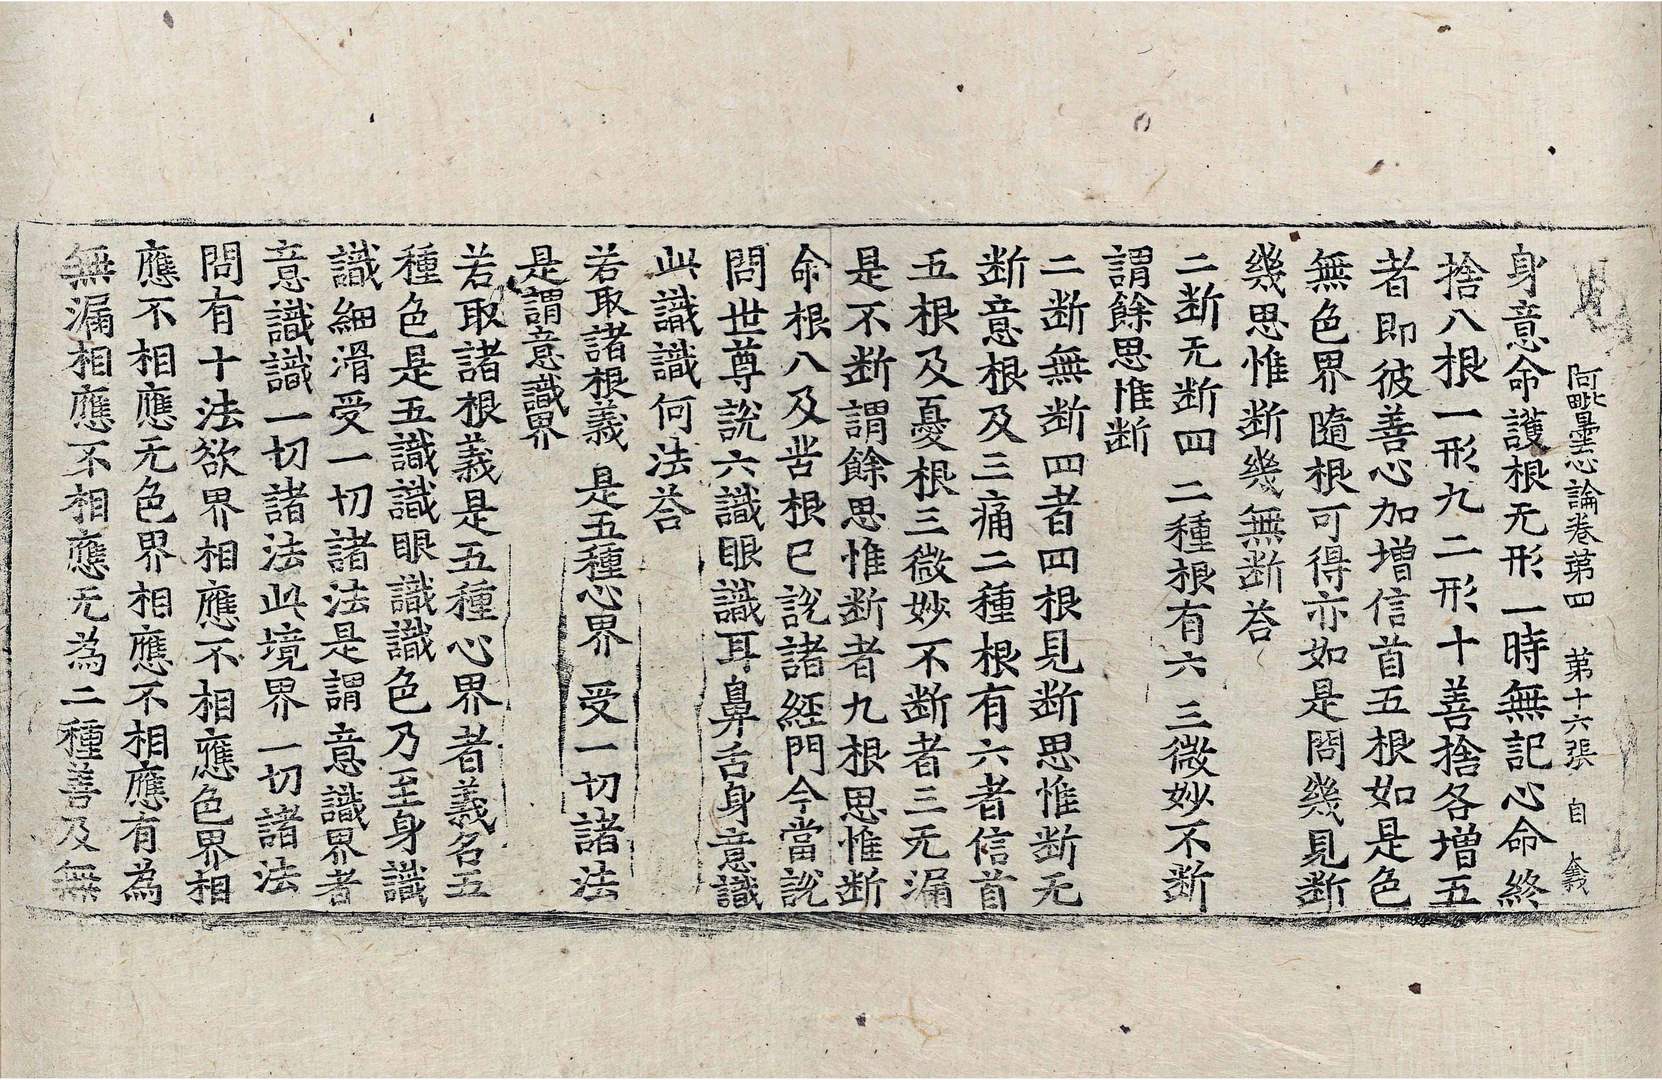 阿毗曇心論卷第四　第十六張　自　義
身意命護根无形一時無記心命終
捨八根一形九二形十善捨各增五
者即彼善心加增信首五根如是色
無色界隨根可得亦如是問幾見断
幾思惟断幾無断荅
二断无断四　二種根有六　三微妙不断
謂餘思惟断
二断無断四者四根見断思惟断无
断意根及三痛二種根有六者信首
五根及憂根三微妙不断者三无漏
是不断謂餘思惟断者九根思惟断
命根八及苦根已說諸經門今當說
問世尊說六識眼識耳鼻舌身意識
此識識何法荅
若取諸根義　是五種心界　受一切諸法
是謂意識界
若取諸根義是五種心界者義名五
種色是五識識眼識識色乃至身識
識細滑受一切諸法是謂意識界者
意識識一切諸法此境界一切諸法
問有十法欲界相應不相應色界相
應不相應无色界相應不相應有為
無漏相應不相應无為二種善及無